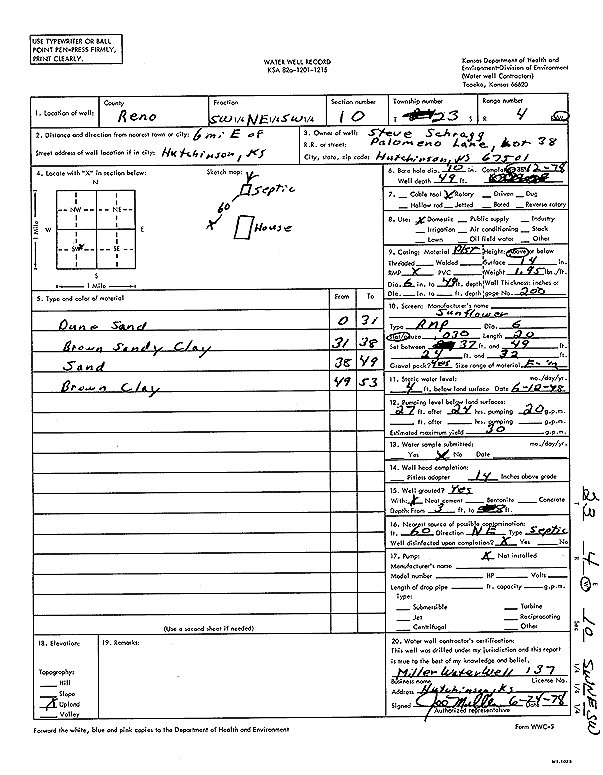 USE TYPEWRITER OR BALL
POINT PEN-PRESS FIRMLY,
PRINT CLEARLY.
WATER WELL RECORD
KSA 82a-1201-1215
Kansas Department of Health and
Environment-Division of Environment
(Water well Contractors)
Topeka, Kansas 66620
1. Location of well: County Reno Fraction SW 1/4 NE 1/4 SW 1/4 Section number 10 Township number T 23 S Range number R 4 E/W
2. Distance and direction from nearest town or city: 6 mi E of
Street address of well location if in city: Hutchinson, KS
3. Owner of well: Steve Schragg
R.R. or street: Palomeno Lane, Lot 38
City, state, zip code: Hutchinson, KS 67501
4. Locate with "X" in section below:
N
NW NE
W E
SW SE
S
1 Mile
1 Mile
Sketch map:
Septic
60
X House
5. Type and color of material From To
Dune Sand 0 31
Brown Sandy Clay 31 38
Sand 38 49
Brown Clay 49 53
(Use a second sheet if needed)
6. Bore hole dia. 10 in. Completion date 6-12-78
Well depth 49 ft.
7. Cable tool X Rotary Driven Dug
Hollow rod Jetted Bored Reverse rotary
8. Use: X Domestic Public supply Industry
Irrigation Air conditioning Stock
Lawn Oil field water Other
9. Casing: Material Plst Height: Above or below
Threaded Welded Surface 14 in.
RMP X PVC Weight 1.95 lbs./ft.
Dia. 6 in. to 49 ft. depth Wall Thickness: inches or
Dia. in. to ft. depth gage No. 200
10. Screen: Manufacturer's name
Sunflower
Type RMP Dia. 6
Slot/gauze .030 Length 20
Set between 37 ft. and 49 ft.
24 ft. and 32 ft.
Gravel pack? Yes Size range of material
11. Static water level: mo./day/yr.
4 ft. below land surface Date 6-12-78
12. Pumping level below land surface:
27 ft. after 24 hrs. pumping 20 g.p.m.
ft. after hrs. pumping g.p.m.
Estimated maximum yield 30 g.p.m.
13. Water sample submitted: mo./day/yr.
Yes X No Date
14. Well head completion:
Pitless adapter 14 Inches above grade
15. Well grouted? Yes
With: X Neat cement Bentonite Concrete
Depth: From 3 ft. to ft.
16. Nearest source of possible contamination:
ft. 60 Direction NE Type Septic
Well disinfected upon completion? X Yes No
17. Pump: X Not installed
Manufacturer's name
Model number HP Volts
Length of drop pipe ft. capacity g.p.m.
Type:
Submersible Turbine
Jet Reciprocating
Centrifugal Other
18. Elevation:
Topography:
Hill
Slope
X Upland
Valley
19. Remarks:
20. Water well contractor's certification:
This well was drilled under my jurisdiction and this report
is true to the best of my knowledge and belief.
Miller Water Well 137
Business name License No.
Address Hutchinson, KS
Signed Joe Miller 6-24-78
Authorized representative Date
Forward the white, blue and pink copies to the Department of Health and Environment
Form WWC-5
T 23 R 4 E W Sec 10 1/4 1/4 1/4 SW NE SW